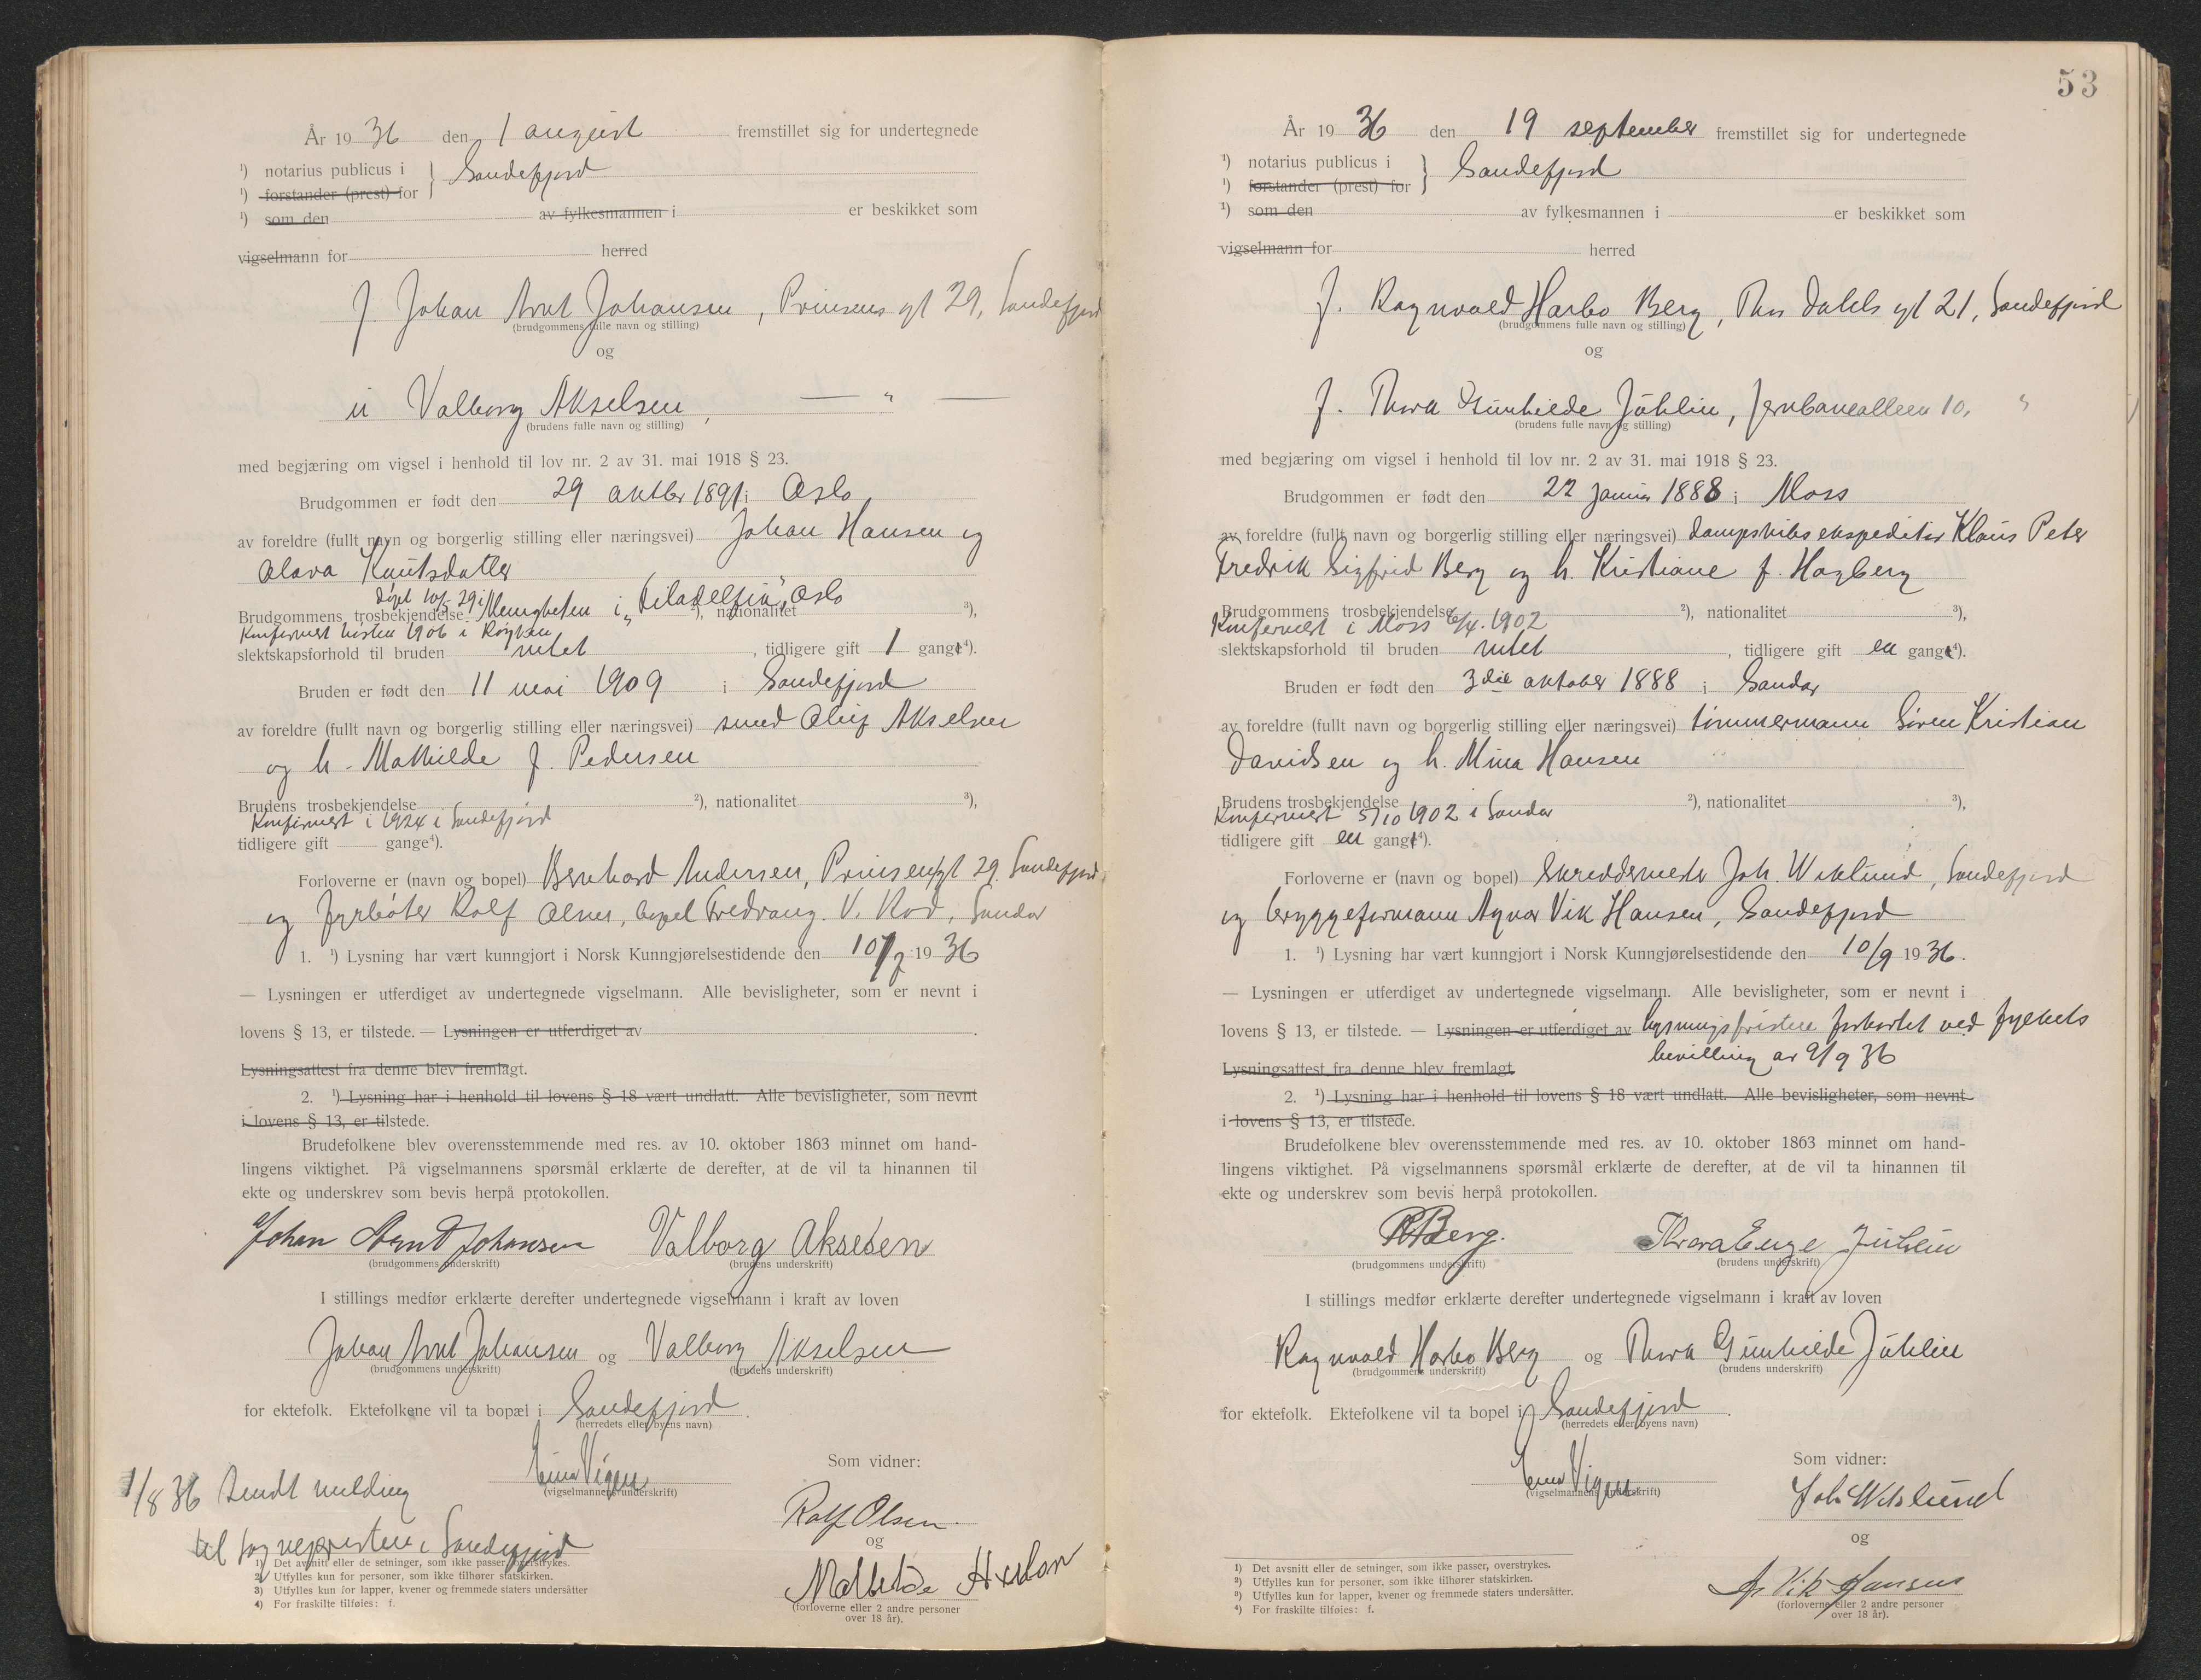 År 19 36 den 1 august fremstillet sig for undertegnede
¹) notarius publicus i } Sandefjord
¹) forstander (prest) for
¹) som den av fylkesmannen i er beskikket som
vigselmann for herred
f. Johan Arnt Johansen, Prinsens gt 29, Sandefjord
(brudgommens fulle navn og stilling)
og
u Valborg Akselsen, — " —
(brudens fulle navn og stilling)
med begjæring om vigsel i henhold til lov nr. 2 av 31. mai 1918 § 23.
Brudgommen er født den 29 oktbr 1891 i Oslo
av foreldre (fullt navn og borgerlig stilling eller næringsvei) Johan Hansen og
Olava Knutsdatter
døpt 10/5 29 i Menigheten i „Filadelfia", Oslo
Brudgommens trosbekjendelse ²), nationalitet ³),
Konfirmert høsten 1906 i Røyken
slektskapsforhold til bruden intet, tidligere gift 1 gang⁴).
Bruden er født den 11 mai 1909 i Sandefjord
av foreldre (fullt navn og borgerlig stilling eller næringsvei) smed Oluf Akselsen
og h. Mathilde f. Pedersen
Brudens trosbekjendelse ²), nationalitet ³),
Konfirmert i 1924 i Sandefjord
tidligere gift gange⁴).
Forloverne er (navn og bopel) Bernhard Andersen, Prinsensgt 29. Sandefjord
og fyrbøter Rolf Olsen, bopel Fredvang. V. Rød, Sandar
1. ¹) Lysning har vært kunngjort i Norsk Kunngjørelsestidende den 10/7 1936
— Lysningen er utferdiget av undertegnede vigselmann. Alle bevisligheter, som er nevnt i
lovens § 13, er tilstede. — Lysningen er utferdiget av .
Lysningsattest fra denne blev fremlagt.
2. ¹) Lysning har i henhold til lovens § 18 vært undlatt. Alle bevisligheter, som nevnt
i lovens § 13, er tilstede.
Brudefolkene blev overensstemmende med res. av 10. oktober 1863 minnet om hand-
lingens viktighet. På vigselmannens spørsmål erklærte de derefter, at de vil ta hinannen til
ekte og underskrev som bevis herpå protokollen.
Johan Arnt Johansen Valborg Akselsen
(brudgommens underskrift) (brudens underskrift)
I stillings medfør erklærte derefter undertegnede vigselmann i kraft av loven
Johan Arnt Johansen og Valborg Akselsen
(brudgommens underskrift) (brudens underskrift)
for ektefolk. Ektefolkene vil ta bopæl i Sandefjord.
(herredets eller byens navn)
Som vidner:
Vigen
(vigselmannens underskrift)
1/8 36 sendt melding
til sognepresten i Sandefjord
Rolf Olsen
og
Mathilde
(forloverne eller 2 andre personer
over 18 år).
1) Det avsnitt eller de setninger, som ikke passer, overstrykes.
2) Utfylles kun for personer, som ikke tilhører statskirken.
3) Utfylles kun for lapper, kvener og fremmede staters undersåtter
4) For fraskilte tilføies: f.
53
År 19 36 den 19 september fremstillet sig for undertegnede
¹) notarius publicus i } Sandefjord
¹) forstander (prest) for
¹) som den av fylkesmannen i er beskikket som
vigselmann for herred
f. Ragnvald Harbo Berg, Thor Dahls gt 21, Sandefjord
(brudgommens fulle navn og stilling)
og
f. Thora Gunhilde Juhlin, Jernbanealleen 10, "
(brudens fulle navn og stilling)
med begjæring om vigsel i henhold til lov nr. 2 av 31. mai 1918 § 23.
Brudgommen er født den 22 januar 1888 i Moss
av foreldre (fullt navn og borgerlig stilling eller næringsvei) dampskibsekspeditør Klaus Peter
Fredrik Sigfrid Berg og h. Kristiane f. Hagberg
Brudgommens trosbekjendelse ²), nationalitet ³),
Konfirmert i Moss 6/4. 1902
slektskapsforhold til bruden intet, tidligere gift en gang⁴).
Bruden er født den 3die oktober 1888 i Sandar
av foreldre (fullt navn og borgerlig stilling eller næringsvei) tømmermann Søren Kristian
Davidsen og h. Mina Hansen
Brudens trosbekjendelse ²), nationalitet ³),
Konfirmert 5/10 1902 i Sandar
tidligere gift en gang⁴).
Forloverne er (navn og bopel) Skreddermester Joh. Wiklund, Sandefjord
og bryggeformann Agnar Vik Hansen, Sandefjord
1. ¹) Lysning har vært kunngjort i Norsk Kunngjørelsestidende den 10/9 1936.
— Lysningen er utferdiget av undertegnede vigselmann. Alle bevisligheter, som er nevnt i
lovens § 13, er tilstede. — Lysningen er utferdiget av lysningsfristen forkortet ved fylkets
bevilling av 9/9 36
Lysningsattest fra denne blev fremlagt.
2. ¹) Lysning har i henhold til lovens § 18 vært undlatt. Alle bevisligheter, som nevnt
i lovens § 13, er tilstede.
Brudefolkene blev overensstemmende med res. av 10. oktober 1863 minnet om hand-
lingens viktighet. På vigselmannens spørsmål erklærte de derefter, at de vil ta hinannen til
ekte og underskrev som bevis herpå protokollen.
RBerg. Thora Juhlin
(brudgommens underskrift) (brudens underskrift)
I stillings medfør erklærte derefter undertegnede vigselmann i kraft av loven
Ragnvald Harbo Berg og Thora Gunhilde Juhlin
(brudgommens underskrift) (brudens underskrift)
for ektefolk. Ektefolkene vil ta bopel i Sandefjord.
(herredets eller byens navn)
Som vidner:
Vigen
(vigselmannens underskrift)
Joh Wiklund
og
A. Vik Hansen
(forloverne eller 2 andre personer
over 18 år).
1) Det avsnitt eller de setninger, som ikke passer, overstrykes.
2) Utfylles kun for personer, som ikke tilhører statskirken.
3) Utfylles kun for lapper, kvener og fremmede staters undersåtter.
4) For fraskilte tilføies: f.